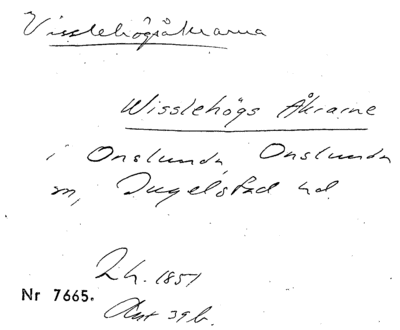 Visslehögsåkrarna
Wisslehögs Åkrarne
i Onslunda, Onslunda
sn, Ingelstad hd.
Lh. 1851
Nr 7665. Akt 39b.